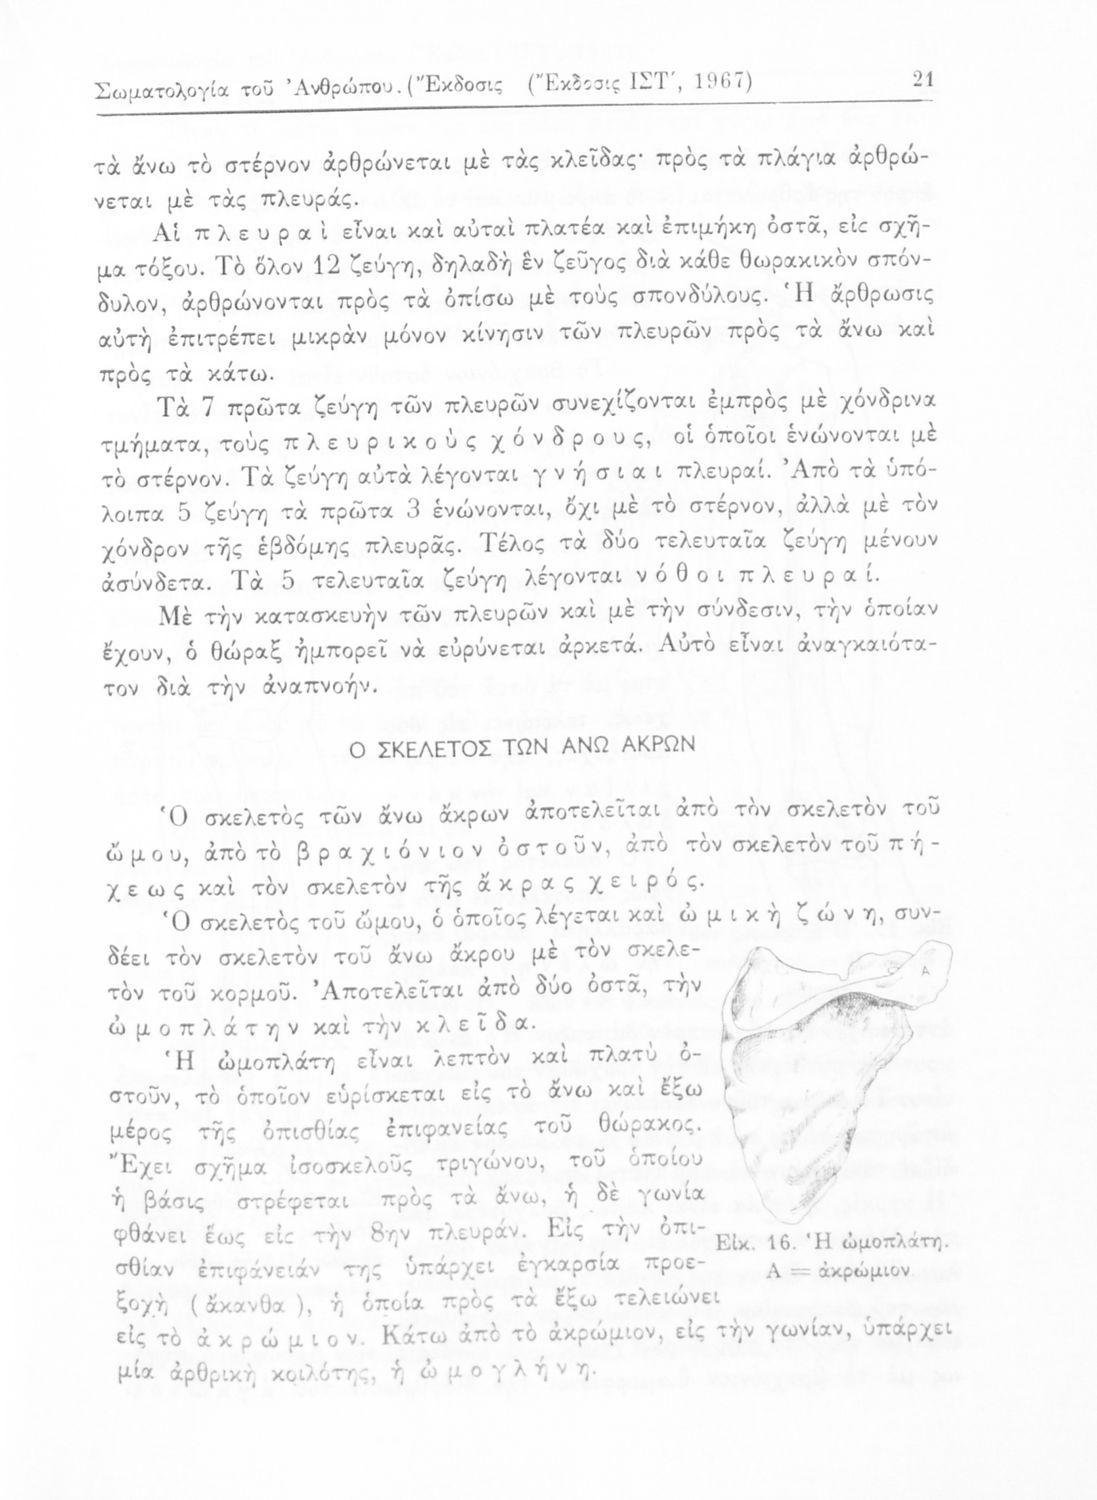 Σωματολογία τοῦ Ἀνθρώπου. (Ἔκδοσις (Ἔκδοσις ΙΣΤ΄, 1967) 21
τὰ ἄνω τὸ στέρνον ἀρθρώνεται μὲ τὰς κλεῖδας· πρὸς τὰ πλάγια ἀρθρώ-
νεται μὲ τὰς πλευράς.
Αἱ πλευραὶ εἶναι καὶ αὐταὶ πλατέα καὶ ἐπιμήκη ὀστᾶ, εἰς σχῆ-
μα τόξου. Τὸ ὅλον 12 ζεύγη, δηλαδὴ ἓν ζεῦγος διὰ κάθε θωρακικὸν σπόν-
δυλον, ἀρθρώνονται πρὸς τὰ ὀπίσω μὲ τοὺς σπονδύλους. Ἡ ἄρθρωσις
αὐτὴ ἐπιτρέπει μικρὰν μόνον κίνησιν τῶν πλευρῶν πρὸς τὰ ἄνω καὶ
πρὸς τὰ κάτω.
Τὰ 7 πρῶτα ζεύγη τῶν πλευρῶν συνεχίζονται ἐμπρὸς μὲ χόνδρινα
τμήματα, τοὺς πλευρικοὺς χόνδρους, οἱ ὁποῖοι ἑνώνονται μὲ
τὸ στέρνον. Τὰ ζεύγη αὐτὰ λέγονται γνήσιαι πλευραί. Ἀπὸ τὰ ὑπό-
λοιπα 5 ζεύγη τὰ πρῶτα 3 ἑνώνονται, ὄχι μὲ τὸ στέρνον, ἀλλὰ μὲ τὸν
χόνδρον τῆς ἑβδόμης πλευρᾶς. Τέλος τὰ δύο τελευταῖα ζεύγη μένουν
ἀσύνδετα. Τὰ 5 τελευταῖα ζεύγη λέγονται νόθοι πλευραί.
Μὲ τὴν κατασκευὴν τῶν πλευρῶν καὶ μὲ τὴν σύνδεσιν, τὴν ὁποίαν
ἔχουν, ὁ θώραξ ἠμπορεῖ νὰ εὐρύνεται ἀρκετά. Αὐτὸ εἶναι ἀναγκαιότα-
τον διὰ τὴν ἀναπνοήν.
Ο ΣΚΕΛΕΤΟΣ ΤΩΝ ΑΝΩ ΑΚΡΩΝ
Ὁ σκελετὸς τῶν ἄνω ἄκρων ἀποτελεῖται ἀπὸ τὸν σκελετὸν τοῦ
ὤμου, ἀπὸ τὸ βραχιόνιον ὀστοῦν, ἀπὸ τὸν σκελετὸν τοῦ πή-
χεως καὶ τὸν σκελετὸν τῆς ἄκρας χειρός.
Ὁ σκελετὸς τοῦ ὤμου, ὁ ὁποῖος λέγεται καὶ ὠμικὴ ζώνη, συν-
δέει τὸν σκελετὸν τοῦ ἄνω ἄκρου μὲ τὸν σκελε-
τὸν τοῦ κορμοῦ. Ἀποτελεῖται ἀπὸ δύο ὀστᾶ, τὴν
ὠμοπλάτην καὶ τὴν κλεῖδα.
Ἡ ὠμοπλάτη εἶναι λεπτὸν καὶ πλατὺ ὀ-
στοῦν, τὸ ὁποῖον εὑρίσκεται εἰς τὸ ἄνω καὶ ἔξω
μέρος τῆς ὀπισθίας ἐπιφανείας τοῦ θώρακος.
Ἔχει σχῆμα ἰσοσκελοῦς τριγώνου, τοῦ ὁποίου
ἡ βάσις στρέφεται πρὸς τὰ ἄνω, ἡ δὲ γωνία
φθάνει ἕως εἰς τὴν 8ην πλευράν. Εἰς τὴν ὀπι-
σθίαν ἐπιφάνειάν της ὑπάρχει ἐγκαρσία προε-
ξοχὴ (ἄκανθα), ἡ ὁποία πρὸς τὰ ἔξω τελειώνει
εἰς τὸ ἀκρώμιον. Κάτω ἀπὸ τὸ ἀκρώμιον, εἰς τὴν γωνίαν, ὑπάρχει
μία ἀρθρικὴ κοιλότης, ἡ ὠμογλήνη.
A
Εἰκ. 16. Ἡ ὠμοπλάτη.
Α = ἀκρώμιον